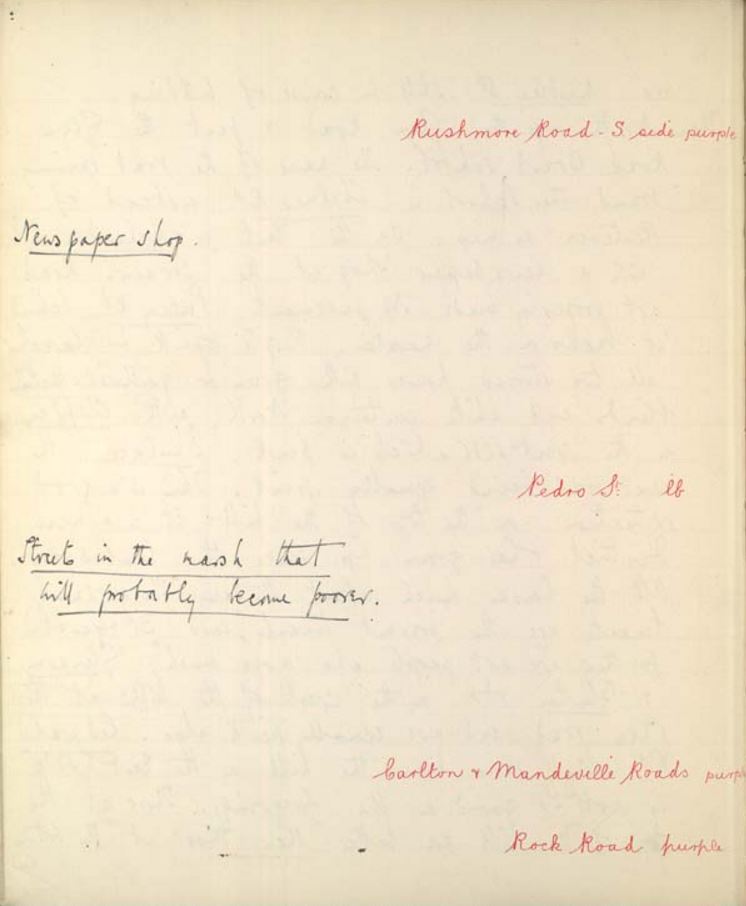 Rushmore Road - S. side purple
Newspaper shop.
Pedro St. lb
Streets in the marsh that
will probably become poorer.
Carlton & Mandeville Roads purple
Rock Road purple